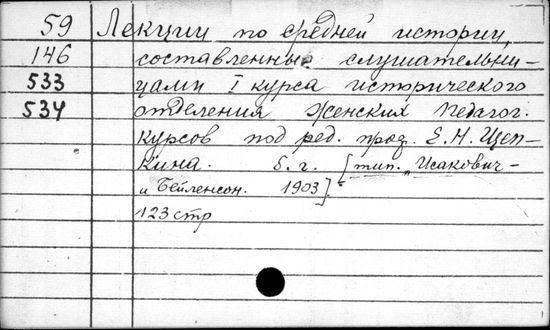 59 Лекции по средней истории,
146 составленные слушательни-
533 цами I курса исторического
534 отделения Женских Педагог.
курсов под ред. проф. Е.Н. Щеп-
кина. Б.г. [тип. „Исакович-
и Бейленсон. 1903].
123 стр